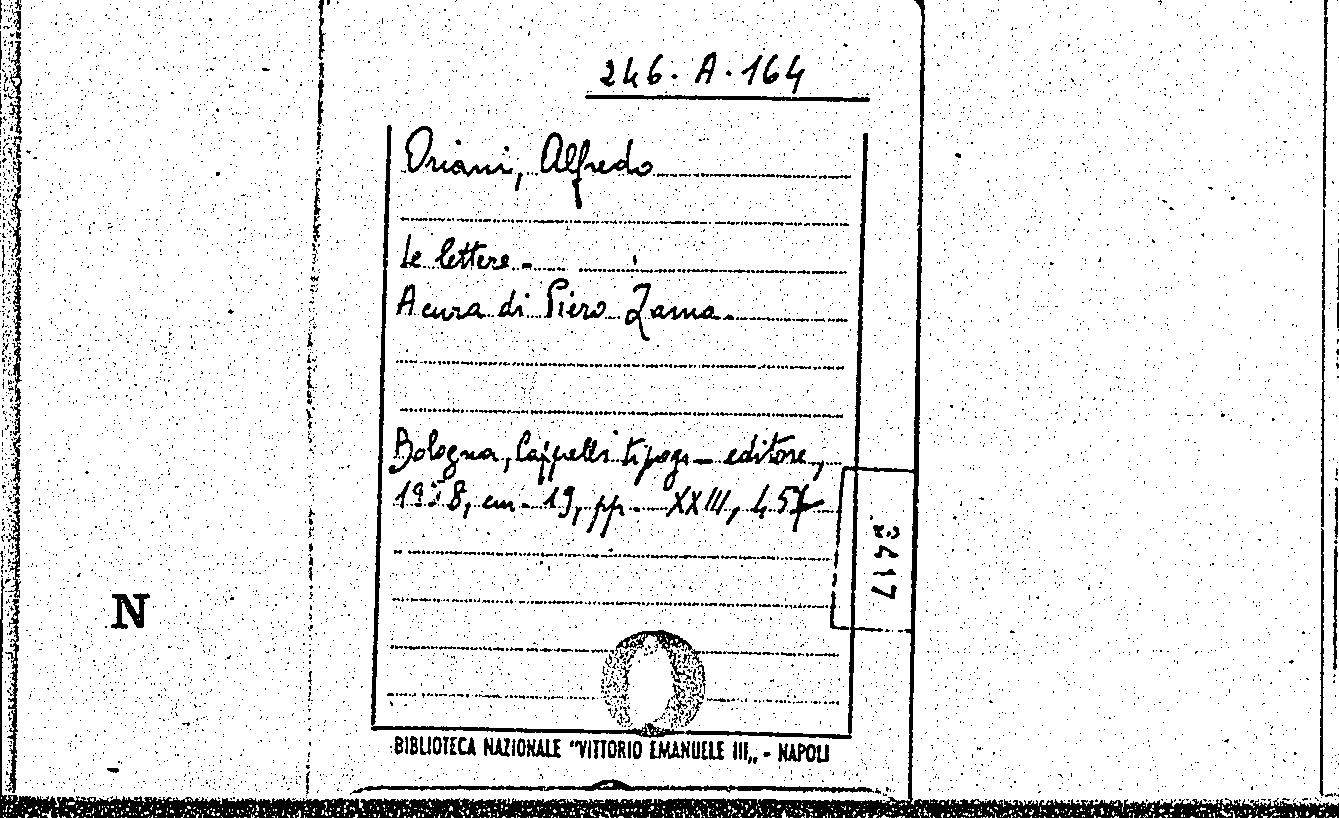 246. A. 164
Oriani, Alfredo
Le lettere -
A cura di Piero Zama.
Bologna, Cappelli tipogr - editore,
cm. 19, pp. XXIII, 457
3417
N
BIBLIOTECA NAZIONALE "VITTORIO EMANUELE III,, - NAPOLI